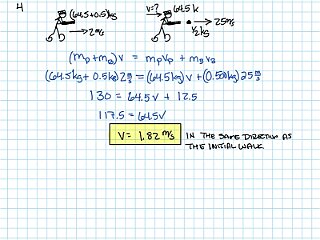 4
(64.5+0.5)kg
2 m/s
V=?
64.5 k
25 m/s
1/2 kg
(mp+mB)v = mpvp + mBvB
(64.5kg + 0.5kg)2 m/s = (64.5kg)v + (0.500kg)25 m/s
130 = 64.5v + 12.5
117.5 = 64.5v
V= 1.82 m/s IN THE SAME DIRECTION AS
THE INITIAL WALK.